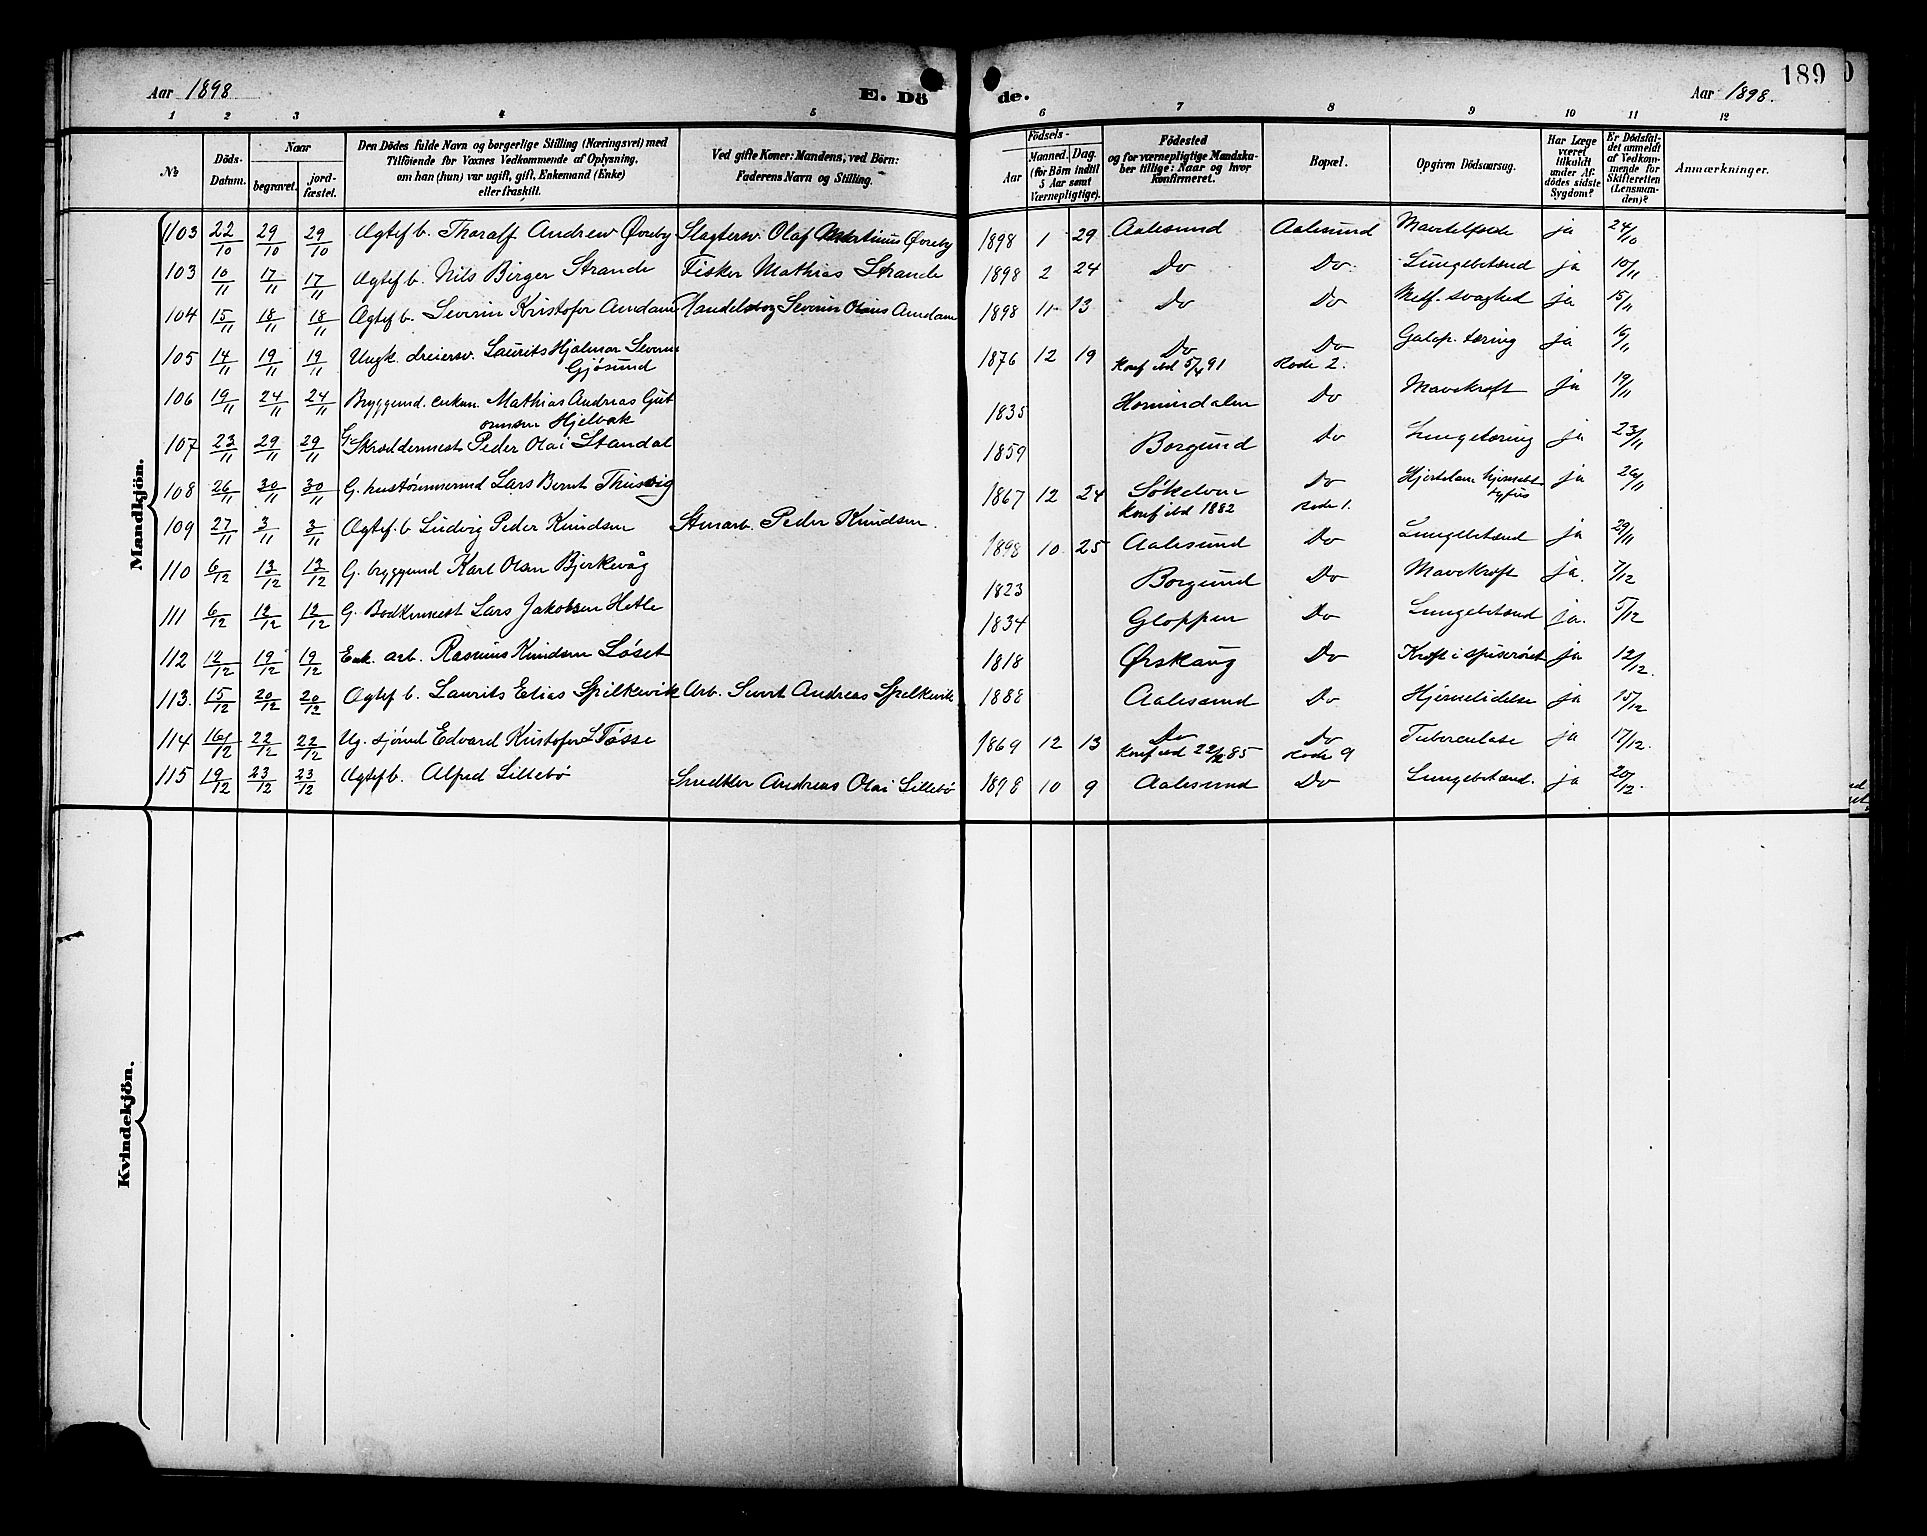 Aar 1898
E. Dö
de.
Aar 1898.
189
1 2 3 4 5 6 7 8 9 10 11 12
No
Döds-Datum.
Naar
begravet.
jord-fæstet.
Den Dödes fulde Navn og borgerlige Stilling (Næringsvei) med
Tilföiende for Voxnes Vedkommende af Oplysning,
om han (hun) var ugift, gift, Enkemand (Enke)
eller fraskilt.
Ved gifte Koner: Mandens; ved Börn:
Faderens Navn og Stilling.
Födsels-
Aar
Maaned. Dag.
(for Börn indtil
5 Aar samt
Værnepligtige).
Födested
og for værnepligtige Mandska-
ber tillige: Naar og hvor
konfirmeret.
Bopæl.
Opgiven Dödsaarsag.
Har Læge
været
tilkaldt
under Af-
dödes sidste
Sygdom?
Er Dödsfal-
det anmeldt
af Vedkom-
mende for
Skifteretten
(Lensman-
den)?
Anmærkninger.
Mandkjön.
103 22/10 29/10 29/10 Ægtef b. Thoralf Andrew Øvreby Slagtersv. Olaf Øvreby 1898 1 29 Aalesund Aalesund ja 24/10
103 10/11 17/11 17/11 Ægtef b. Nils Birger Strande Fisker Mathias Strande 1898 2 24 Do Do Lungebetænd ja 10/11
104 15/11 18/11 18/11 Ægtef b. Severin Kristofer Aandam Severin Olaus Aandam 1898 11 13 Do Do Medf. svaghed ja 15/11
105 14/11 19/11 19/11 Ungk. dreiersv. Laurits Hjalmar Severin
Gjøsund 1876 12 19 Do Do Galop. tæring ja 16/11
Konf ibd 5/4 91 Rode 2.
106 19/11 24/11 24/11 Bryggemd. enkem. Mathias Andreas Gut
ormsen Hjelvak 1835 Hornindalen Do Mavekræft ja 19/11
107 23/11 29/11 29/11 G. Skræddermest Peder Olai Standal 1859 Borgund Do Lungetæring ja 23/11
108 26/11 30/11 30/11 G. hustømmermd Lars Bernt Thusvig 1867 12 24 Søkelven Do ja 26/11
Konf ibd 1882 Rode 1. tyfus
109 27/11 3/11 3/11 Ægtef. b Ludvig Peder Knudsen Peder Knudsen. 1898 10 25 Aalesund Do Lungebetænd ja 29/11
110 6/12 13/12 13/12 G. bryggemd Karl Olsen Bjerkevåg 1823 Borgund Do Mavekræft ja. 7/12
111 6/12 12/12 12/12 G. Bødkermest Lars Jakobsen Hetle 1834 Gloppen Do Lungebetænd ja. 5/12
112 12/12 19/12 19/12 Enk. arb. Rasmus Knudsen Løset 1818 Ørskaug Do Kræft i spiserøret ja 12/12.
113. 15/12 20/12 20/12 Ægtef b. Laurits Elias Spilkevik Arb. Andreas Spilkevik 1888 Aalesund Do Hjernelidelse ja 15/12
114 16/12 22/12 22/12 Ug. sjømd Edvard Kristofer L Tøsse 1869 12 13 Do Do Tuberculose ja 17/12.
Konf ibd 85 Rode 9
115 19/12 23/12 23/12 Ægtef b. Alfred Lillebø Snedker Andreas Olai Lillebø 1898 10 9 Aalesund Do Lungebetænd. ja 20/12.
Kvindekjön.